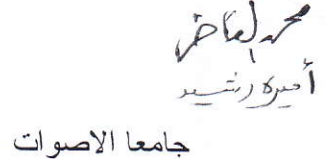 محمد الفاضل
أميرة رشيد
جامعا الاصوات